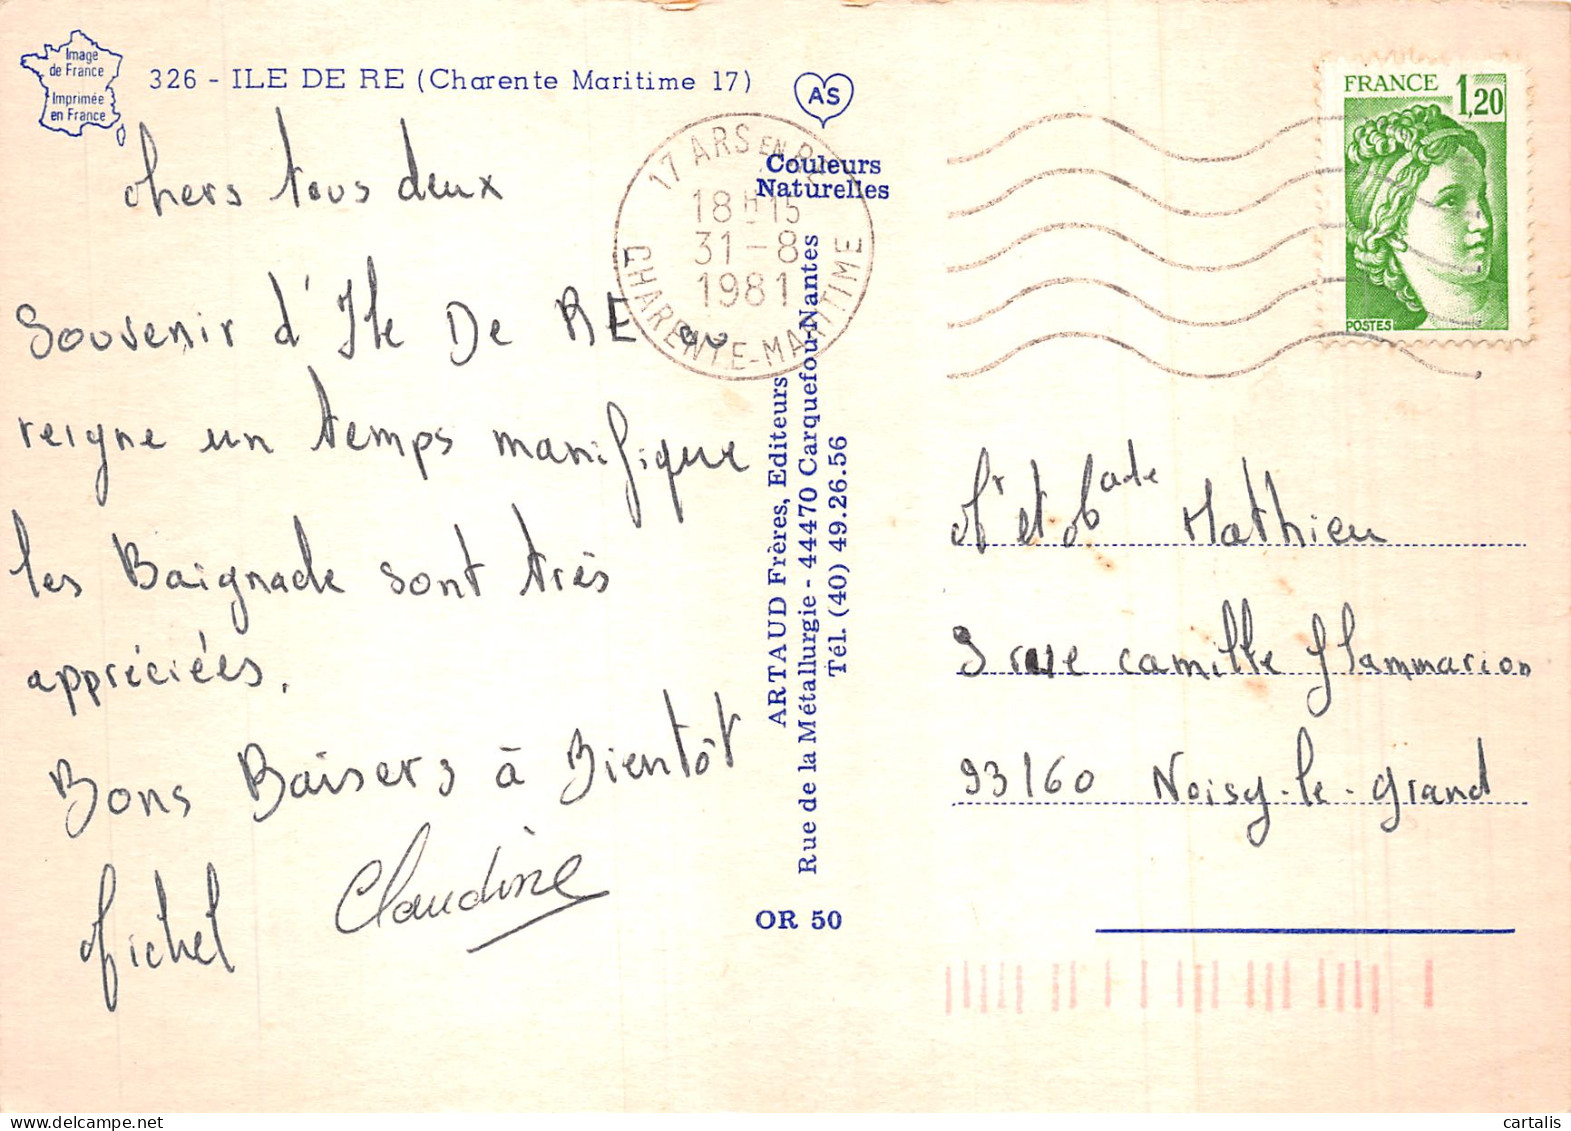 Image
de France
Imprimée
en France
326 - ILE DE RE (Charente Maritime 17)
AS
Couleurs
Naturelles
17 ARS EN RE
18H15
31-8
1981
CHARENTE-MARITIME
FRANCE 1,20
POSTES
chers tous deux
Souvenir d'Ile De RE ou
reigne un temps manifique
les Baignade sont très
appréciées.
Bons Baisers à Bientôt
Michel Claudine
ARTAUD Frères, Editeurs
Rue de la Métallurgie - 44470 Carquefou-Nantes
Tél. (40) 49.26.56
OR 50
Mr et Made Mathieu
rue camille flammarion
93160 Noisy-le-grand
cartalis